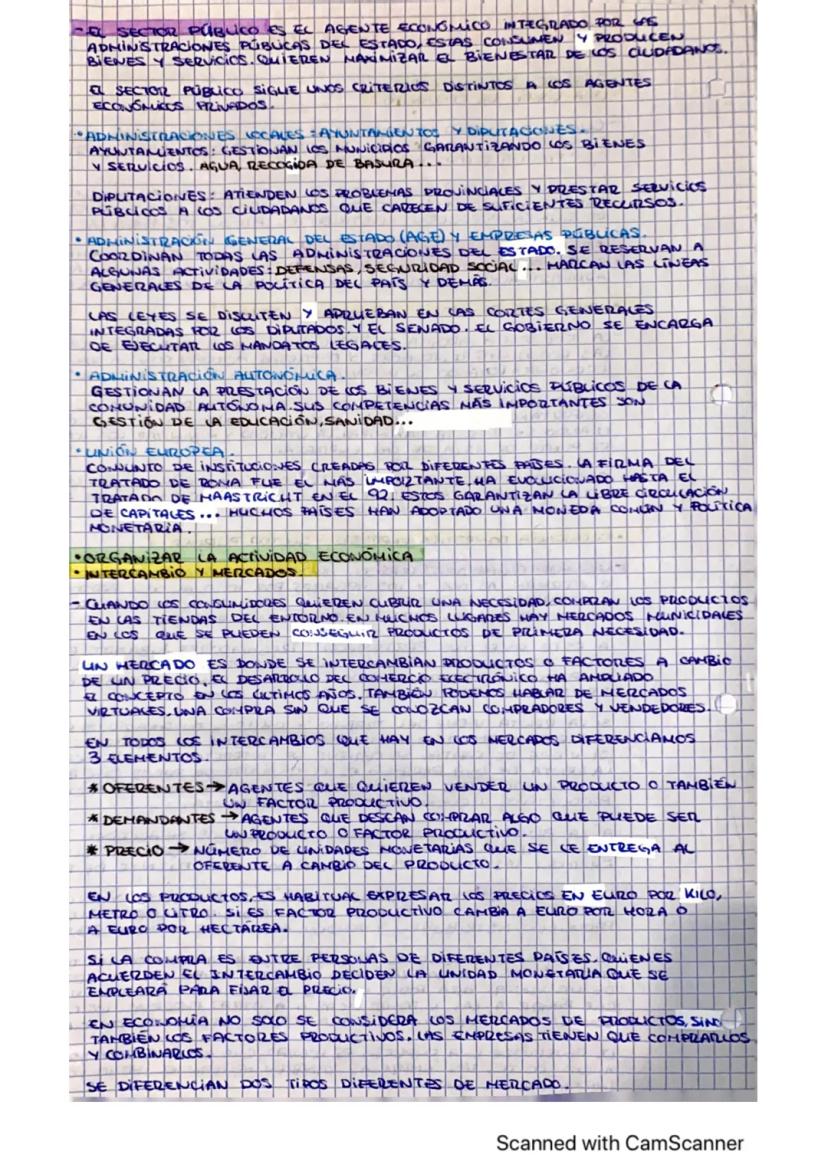 - EL SECTOR PÚBLICO ES EL AGENTE ECONÓMICO INTEGRADO POR LAS
ADMINISTRACIONES PÚBLICAS DEL ESTADO, ESTAS CONSUMEN Y PRODUCEN
BIENES Y SERVICIOS. QUIEREN MAXIMIZAR EL BIENESTAR DE LOS CIUDADANOS.
EL SECTOR PÚBLICO SIGUE UNOS CRITERIOS DISTINTOS A LOS AGENTES
ECONÓMICOS PRIVADOS.
• ADMINISTRACIONES LOCALES: AYUNTAMIENTOS Y DIPUTACIONES.
AYUNTAMIENTOS: GESTIONAN LOS MUNICIPIOS GARANTIZANDO LOS BIENES
Y SERVICIOS. AGUA, RECOGIDA DE BASURA...
DIPUTACIONES: ATIENDEN LOS PROBLEMAS PROVINCIALES Y PRESTAR SERVICIOS
PÚBLICOS A LOS CIUDADANOS QUE CARECEN DE SUFICIENTES RECURSOS.
• ADMINISTRACIÓN GENERAL DEL ESTADO (AGE) Y EMPRESAS PÚBLICAS.
COORDINAN TODAS LAS ADMINISTRACIONES DEL ESTADO. SE RESERVAN A
ALGUNAS ACTIVIDADES: DEFENSAS, SEGURIDAD SOCIAL... MARCAN LAS LÍNEAS
GENERALES DE LA POLÍTICA DEL PAÍS Y DEMÁS.
LAS LEYES SE DISCUTEN Y APRUEBAN EN LAS CORTES GENERALES
INTEGRADAS POR LOS DIPUTADOS. Y EL SENADO. EL GOBIERNO SE ENCARGA
DE EJECUTAR LOS MANDATOS LEGALES.
• ADMINISTRACIÓN AUTONÓMICA.
GESTIONAN LA PRESTACIÓN DE LOS BIENES Y SERVICIOS PÚBLICOS DE LA
COMUNIDAD AUTÓNOMA. SUS COMPETENCIAS MÁS IMPORTANTES SON
GESTIÓN DE LA EDUCACIÓN, SANIDAD...
• UNIÓN EUROPEA.
CONJUNTO DE INSTITUCIONES CREADAS POR DIFERENTES PAÍSES. LA FIRMA DEL
TRATADO DE ROMA FUE EL MÁS IMPORTANTE. HA EVOLUCIONADO HASTA EL
TRATADO DE MAASTRICHT EN EL 92. ESTOS GARANTIZAN LA LIBRE CIRCULACIÓN
DE CAPITALES... MUCHOS PAÍSES HAN ADOPTADO UNA MONEDA COMÚN Y POLÍTICA
MONETARIA.
• ORGANIZAR LA ACTIVIDAD ECONÓMICA
• INTERCAMBIO Y MERCADOS.
- CUANDO LOS CONSUMIDORES QUIEREN CUBRIR UNA NECESIDAD, COMPRAN LOS PRODUCTOS
EN LAS TIENDAS DEL ENTORNO. EN MUCHOS LUGARES HAY MERCADOS MUNICIPALES
EN LOS QUE SE PUEDEN CONSEGUIR PRODUCTOS DE PRIMERA NECESIDAD.
UN MERCADO ES DONDE SE INTERCAMBIAN PRODUCTOS O FACTORES A CAMBIO
DE UN PRECIO. EL DESARROLLO DEL COMERCIO ELECTRÓNICO HA AMPLIADO
EL CONCEPTO EN LOS ÚLTIMOS AÑOS. TAMBIÉN PODEMOS HABLAR DE MERCADOS
VIRTUALES. UNA COMPRA SIN QUE SE CONOZCAN COMPRADORES Y VENDEDORES.
EN TODOS LOS INTERCAMBIOS QUE HAY EN LOS MERCADOS DIFERENCIAMOS
3 ELEMENTOS.
* OFERENTES → AGENTES QUE QUIEREN VENDER UN PRODUCTO O TAMBIÉN
UN FACTOR PRODUCTIVO.
* DEMANDANTES → AGENTES QUE DESEAN COMPRAR ALGO QUE PUEDE SER
UN PRODUCTO O FACTOR PRODUCTIVO.
* PRECIO → NÚMERO DE UNIDADES MONETARIAS QUE SE LE ENTREGA AL
OFERENTE A CAMBIO DEL PRODUCTO.
EN LOS PRODUCTOS, ES HABITUAL EXPRESAR LOS PRECIOS EN EURO POR KILO,
METRO O LITRO. SI ES FACTOR PRODUCTIVO CAMBIA A EURO POR HORA O
A EURO POR HECTÁREA.
SI LA COMPRA ES ENTRE PERSONAS DE DIFERENTES PAÍSES. QUIENES
ACUERDEN EL INTERCAMBIO DECIDEN LA UNIDAD MONETARIA QUE SE
EMPLEARÁ PARA FIJAR EL PRECIO.
EN ECONOMÍA NO SOLO SE CONSIDERA LOS MERCADOS DE PRODUCTOS, SINO
TAMBIÉN LOS FACTORES PRODUCTIVOS. LAS EMPRESAS TIENEN QUE COMPRARLOS
Y COMBINARLOS.
SE DIFERENCIAN DOS TIPOS DIFERENTES DE MERCADO.
Scanned with CamScanner